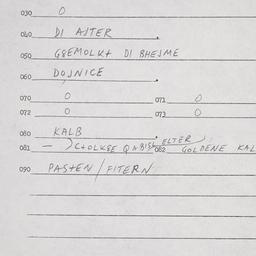 030 O
040 DI AJTER
050 GGEMOLKT DI BHEJME
060 DOJNICE
070 O 071 O
072 O 073 O
080 KALB
081 — 082 ELTER GOLDENE KAL
090 PASTEN / FITERN